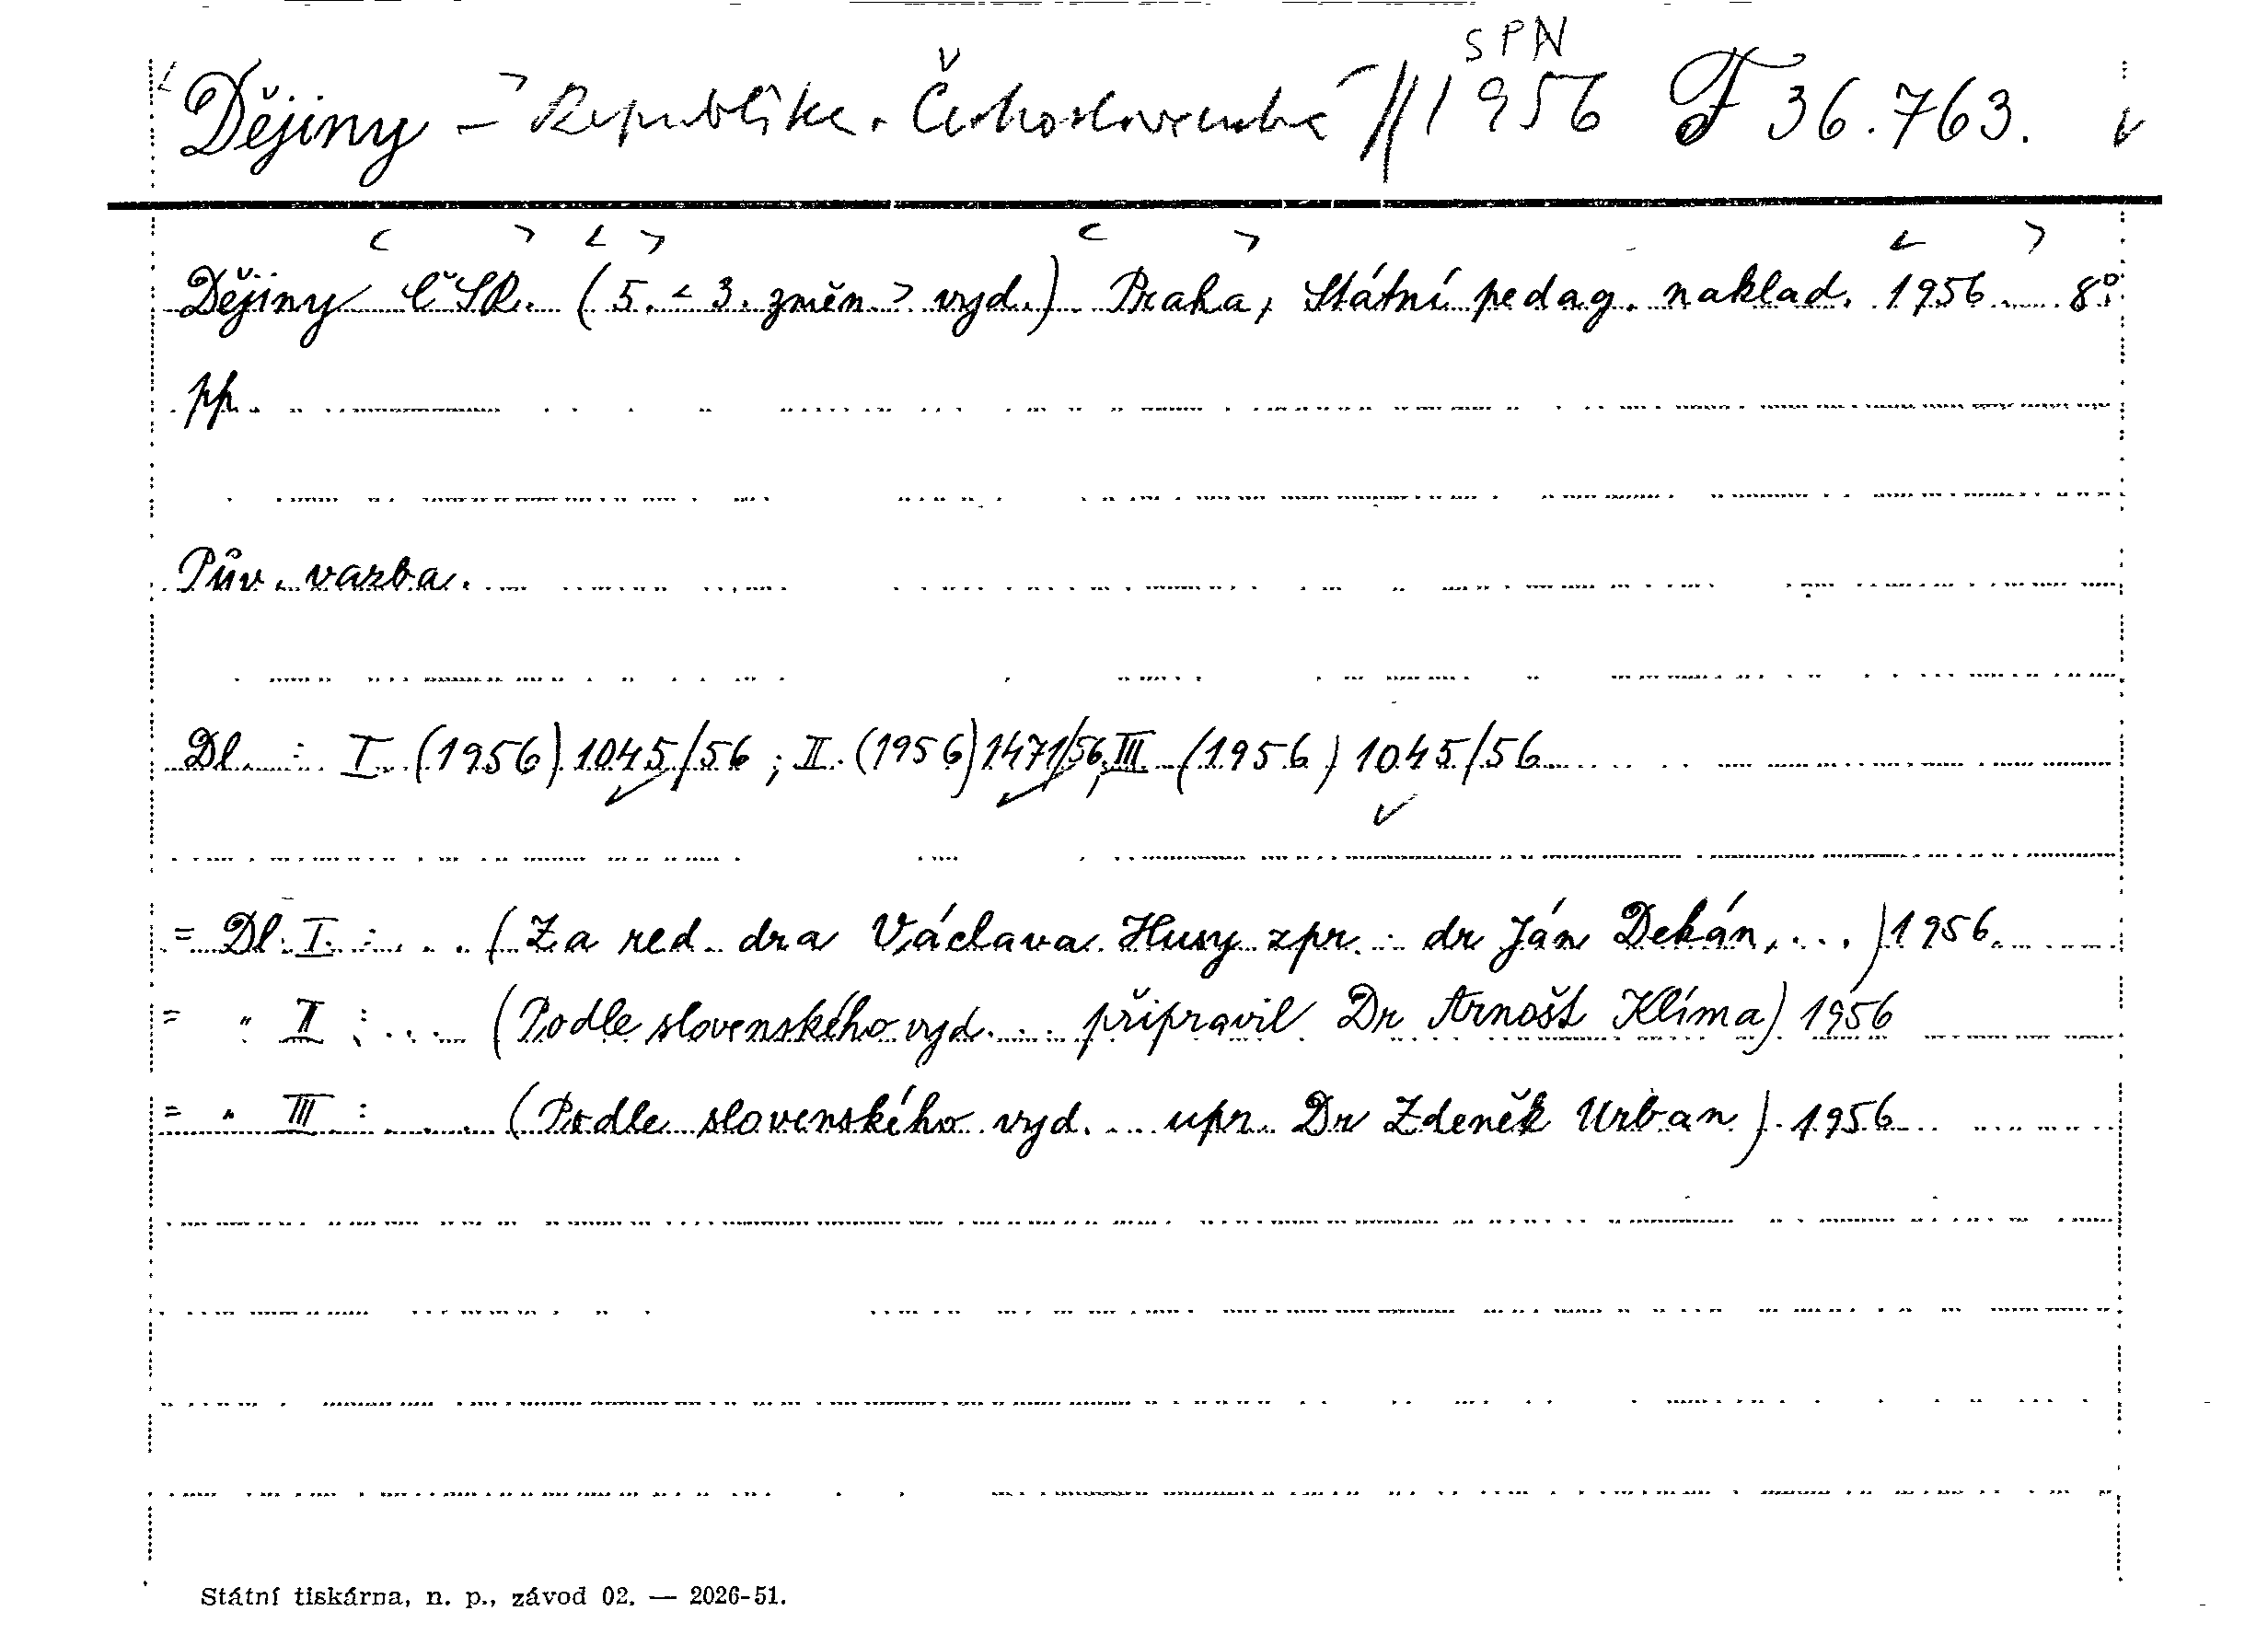 SPN
Dějiny - Republika Československá // 1956 F 36.763.
Dějiny ČSR. (5. < 3. změn. > vyd.) Praha, Státní pedag. naklad. 1956. 8°.
pp.
Pův. vazba.
Dl. : I. (1956) 1045/56 ; II. (1956) 1471/56, III. (1956) 1045/56
= Dl. I. : ... (Za red. dra Václava Husy zpr. : dr Ján Dekán, ...) 1956.
= " II : ... (Podle slovenského vyd. ... připravil Dr Arnošt Klíma) 1956
= " III : ... (Podle slovenského vyd. ... upr. Dr Zdeněk Urban). 1956
Státní tiskárna, n. p., závod 02. — 2026-51.